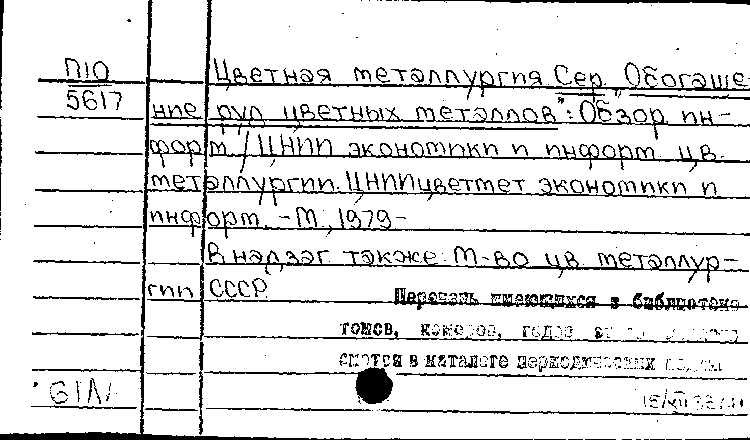 П10
5617
Цветная металлургия Сер. "Обогаще-
ние руд цветных металлов": Обзор ин-
форм / ЦНИИ экономики и информ. цв.
металлургии. ЦНИИцветмет экономики и
информ. - М, 1979-
В надзаг также: М-во цв. металлур-
гии СССР
Перечень имеющихся в библиотеке
томов, номеров, годов
смотри в каталоге периодических